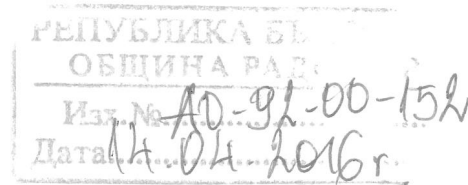 РЕПУБЛИКА
ОБЩИНА
Изх.№ АО-92-00-152
Дата 14.04.2016г